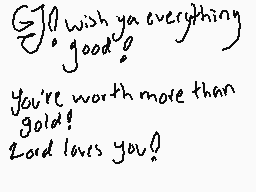 GJ! wish ya everything
good!
You're worth more than
gold!
Lord loves you!